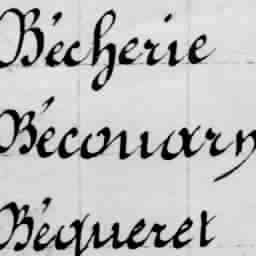 Bécherie
Bécouarn
Béqueret